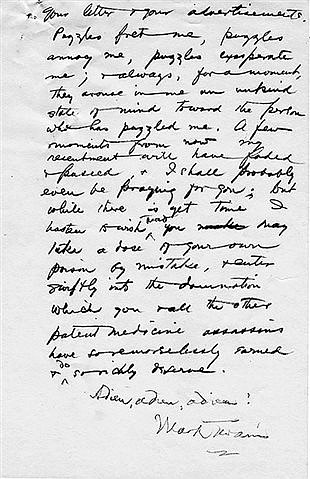 your letter & your advertisements.
Puzzles fret me, puzzles
annoy me, puzzles exasperate
me; & always, for a moment,
they arouse in me an unkind
state of mind toward the person
who has puzzled me. A few
moments from now my
resentment will have faded
& passed & I shall probably
even be praying for you; but
while there is yet time I
hasten to wish that you may
take a dose of your own
poison by mistake, & enter
swiftly into the damnation
which you & all the other
patent medicine assassins
have so remorselessly earned
& do so richly deserve.
Adieu, adieu, adieu!
Mark Twain